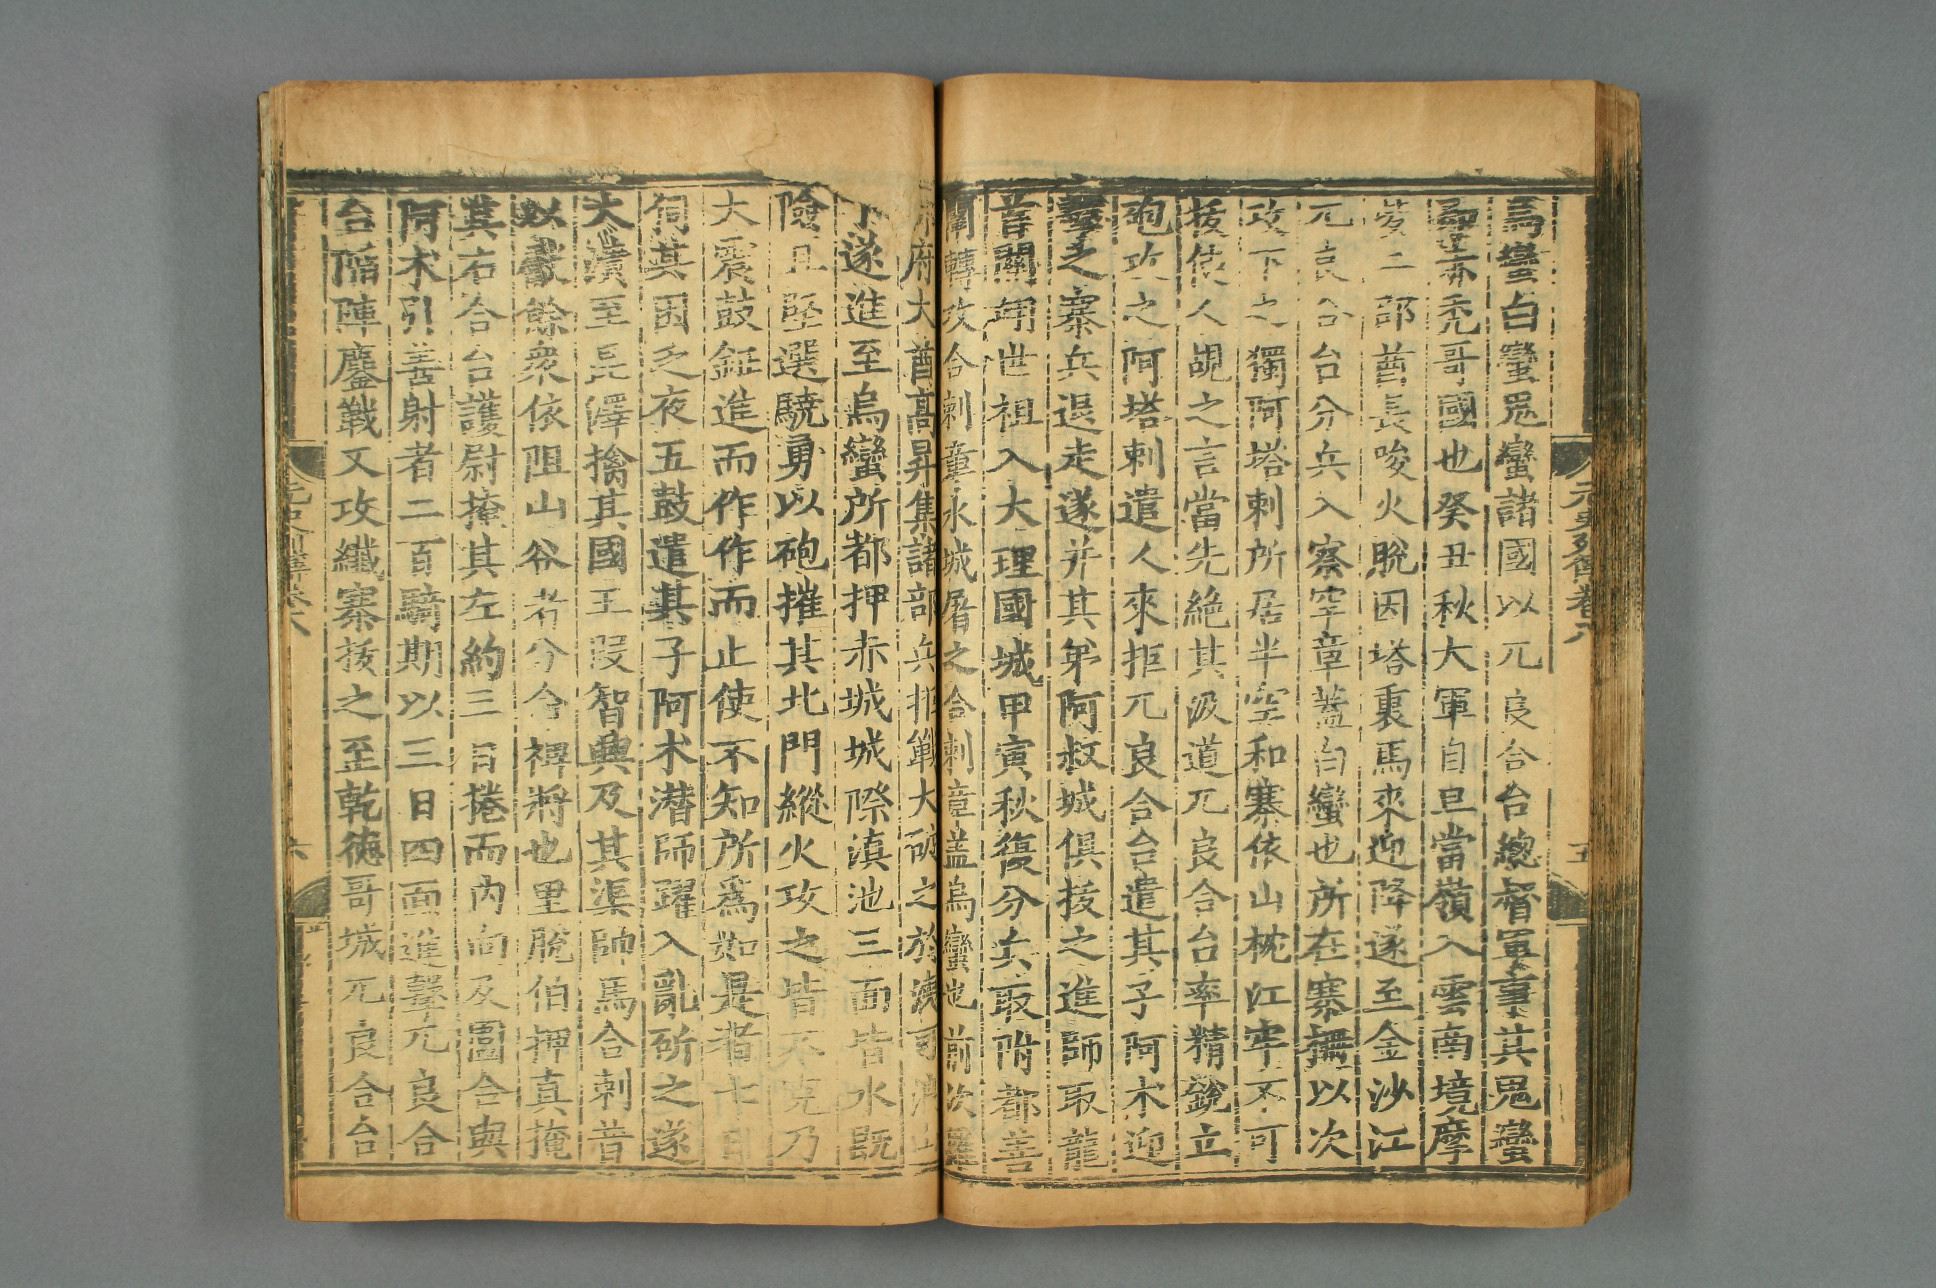 烏蠻白蠻鬼蠻諸國以兀良合台總督軍事其鬼蠻
即赤禿哥國也癸丑秋大軍自旦當嶺入雲南境摩
些二部酋長唆火脫因塔裏馬來迎降遂至金沙江
兀良合台分兵入察罕章蓋白蠻也所在寨撫以次
攻下之獨阿塔剌所居半空和寨依山枕江牢不可
拔使人覘之言當先絕其汲道兀良合台率精銳立
砲攻之阿塔剌遣人來拒兀良合台遣其子阿朮迎
擊之寨兵退走遂并其弟阿叔城俱拔之進師取龍
首關翊世祖入大理國城甲寅秋復分兵取附都善
闡轉攻合剌章水城屠之合剌章蓋烏蠻也前次羅
府大酋高昇集諸部兵拒戰大破之於洩可浪山
下遂進至烏蠻所都押赤城城際滇池三面皆水既
險且堅選驍勇以砲摧其北門縱火攻之皆不克乃
大震鼓鉦進而作作而止使不知所爲如是者七日
伺其困乏夜五鼓遣其子阿朮潛師躍入亂斫之遂
大潰至昆澤擒其國王段智興及其渠帥馬合剌昔
以獻餘衆依阻山谷者分命裨將也里脫伯押真掩
其右合台護尉掩其左約三日捲而內向及圍合與
阿朮引善射者二百騎期以三日四面進擊兀良合
台陷陣鏖戰又攻纖寨拔之至乾德哥城兀良合台
元史列傳卷八
五
元史列傳卷八
六